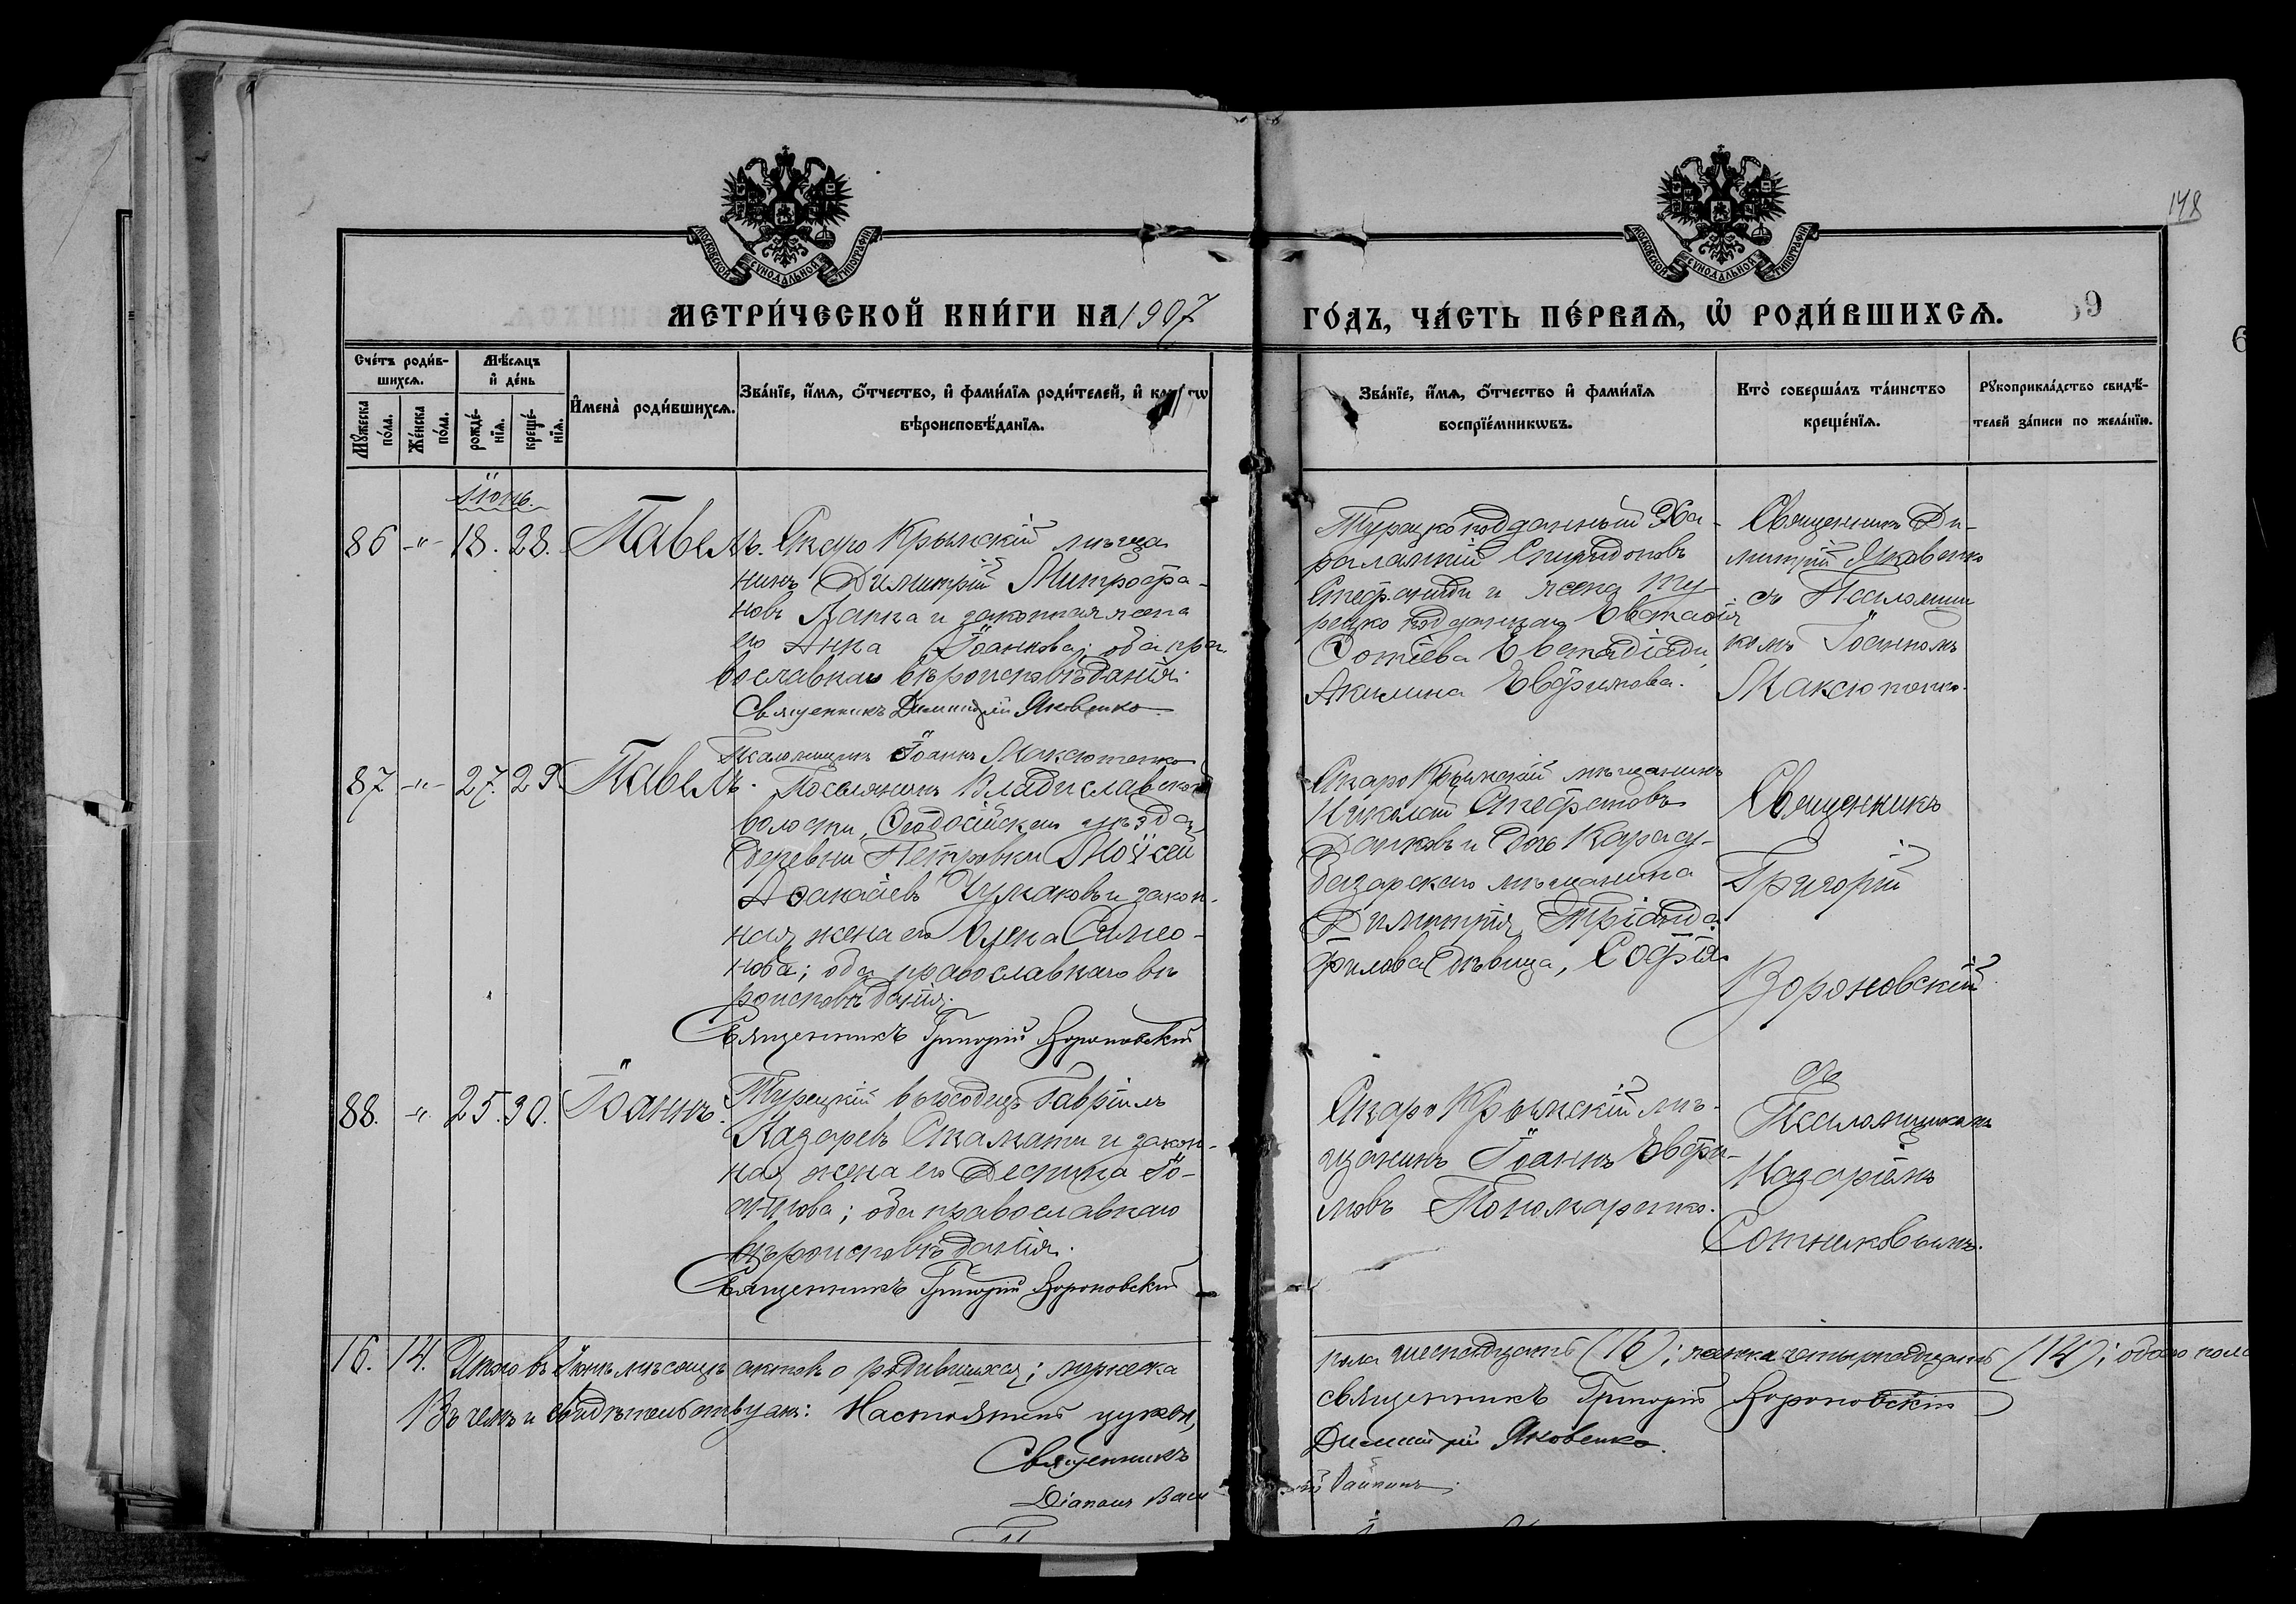 148
МОСКОВСКОЙ СУНОДАЛЬНОЙ ТИПОГРАФІИ
МОСКОВСКОЙ СУНОДАЛЬНОЙ ТИПОГРАФІИ
МЕТРИ́ЧЕСКОЙ КНИ́ГИ НА 1907
ГО́ДЪ, ЧА́СТЬ ПЕ́РВАѦ, Ѡ҆ РОДИ́ВШИХСѦ.
69
Сче́тъ роди́в-
шихсѧ.
Мꙋ́жеска
по́ла.
Же́нска
по́ла.
Мѣ́сѧцъ
и҆ де́нь
рожде́-
нїѧ.
креще́-
нїѧ.
И҆мена̀ роди́вшихсѧ.
Зва́нїе, и҆́мѧ, ѻ҆́тчество, и҆ фами́лїѧ роди́телей, и҆
вѣроисповѣ́данїѧ.
Зва́нїе, и҆́мѧ, ѻ҆́тчество и҆ фами́лїѧ
воспрїе́мникѡвъ.
Кто̀ соверша́лъ та́инство
креще́нїѧ.
Рꙋкоприкла́дство свидѣ́-
телей за́писи по жела́нїю.
Іюнь.
86 -"- 18. 28. Павелъ.
Старо Крымскій мѣща-
нинъ Димитрій Митрофа-
новъ Лапка и законная жена
его Анна Іоаннова; оба пра-
вославнаго вѣроисповѣданія.
Священникъ Димитрій Яковенко
Псаломщикъ Іоаннъ Максютенко
Турецко подданный Ха-
ралампій Спиридоновъ
Стефаниди и жена ту-
рецко подданнаго Евстафія
Фотіева Евстадіади
Акилина Евфимова.
Священникъ Ди-
митрій Яковенко
съ Псаломщи
комъ Іоанномъ
Максютенко.
87 -"- 27. 29. Павелъ.
Поселянинъ Владиславской
волости, Ѳеодосійскаго уѣзда,
деревни Петровки Моѵсей
Аѳанасіевъ Чумаковъ и закон-
ная жена его Елена Симео-
нова; оба православнаго вѣ
роисповѣданія.
Священникъ Григорій Вороновскій
Старо Крымскій мѣщанинъ
Николай Стефановъ
Данковъ и дочь Карасу-
базарскаго мѣщанина
Димитрія Тріанда-
филова дѣвица, Софія
Священникъ
Григорій
Вороновскій
88. -"- 25. 30. Іоаннъ.
Турецкій выходецъ Гавріилъ
Лазаревъ Стамати и закон-
ная жена его Деспина Іо-
аннова; оба православнаго
вѣроисповѣданія.
Священникъ Григорій Вороновскій
Старо Крымскій мѣ-
щанинъ Іоаннъ Евфи-
мовъ Пономаренко.
съ
Псаломщикомъ
Назаріемъ
Сотниковымъ.
16. 14. Итого въ Іюнѣ мѣсяцѣ актовъ о родившихся; мужеска
пола шестнадцать (16); женска четырнадцать (14); обоего пола
Въ чемъ и свидѣтельствуютъ: Настоятель церкви,
священникъ Григорій Вороновскій
Священникъ
Димитрій Яковенко.
Діаконъ